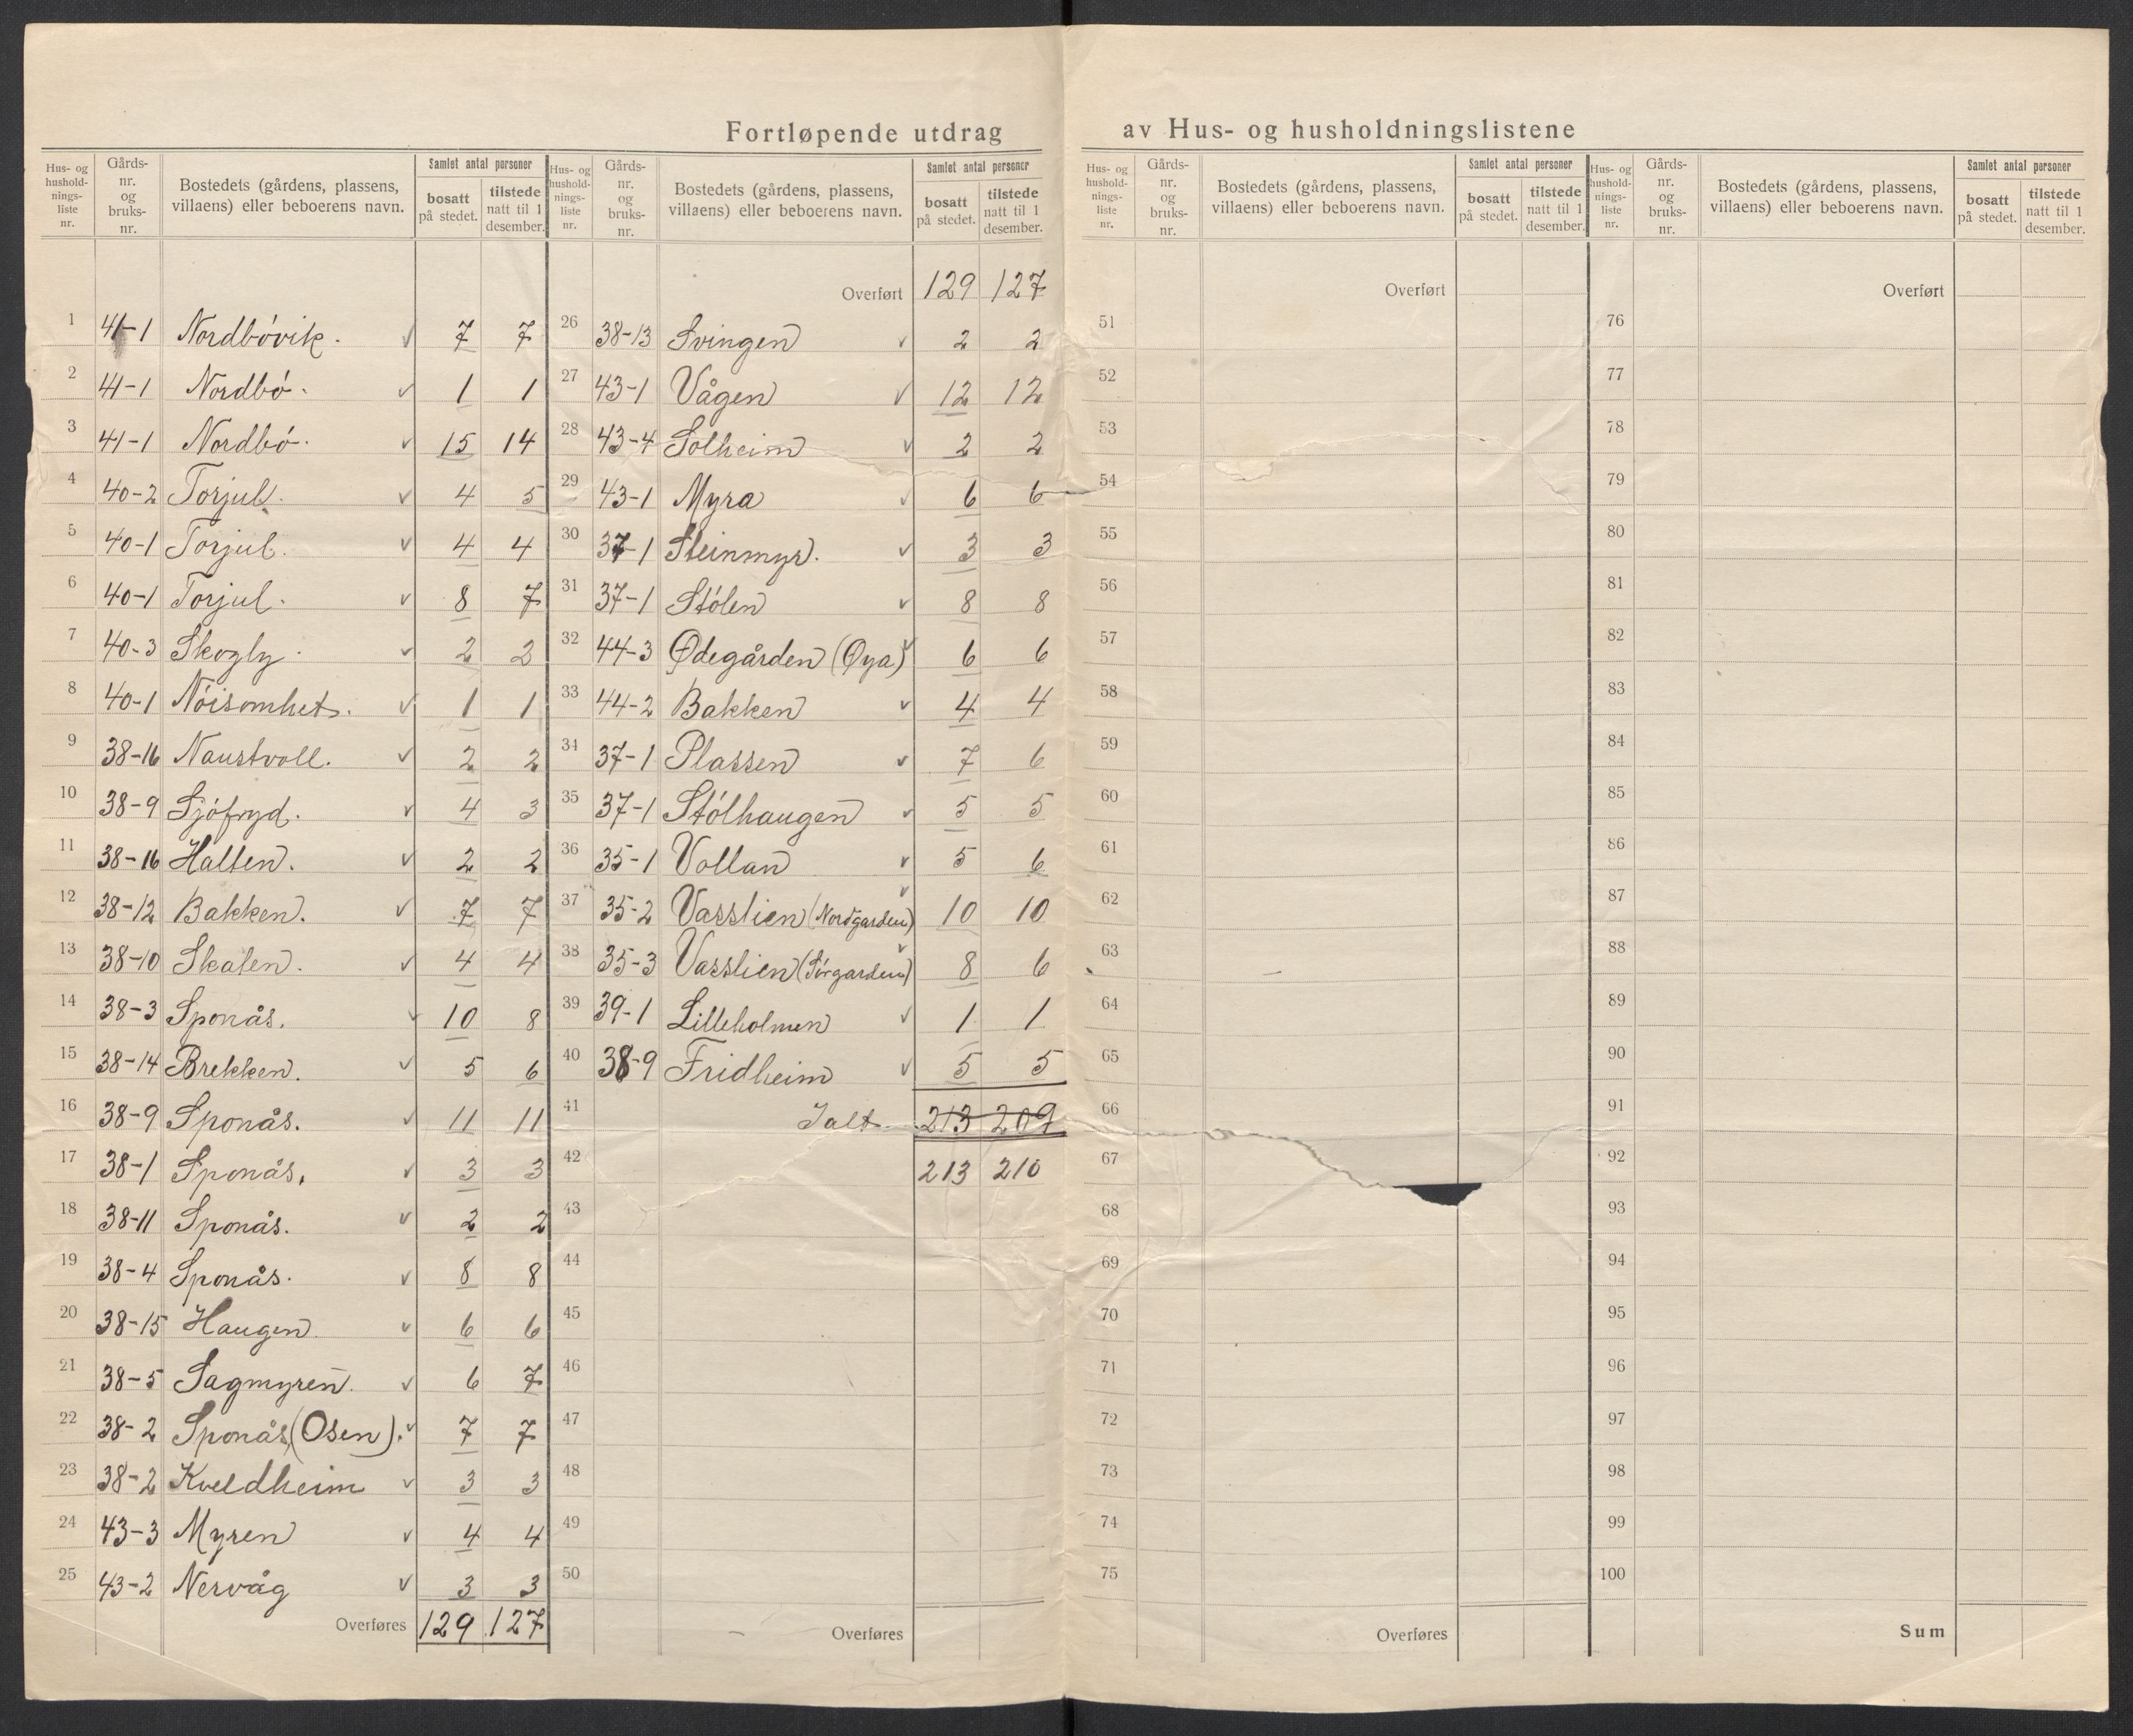 Fortløpende utdrag av Hus- og husholdningslistene
Hus- og hushold-nings-liste nr. | Gårds-nr. og bruks-nr. | Bostedets (gårdens, plassens, villaens) eller beboerens navn. | Samlet antal personer | bosatt på stedet. | tilstede natt til 1 desember.
1 41-1 Nordbövik. 7 7
2 41-1 Nordbö. 1 1
3 41-1 Nordbö. 15 14
4 40-2 Torjul. 4 5
5 40-1 Torjul. 4 4
6 40-1 Torjul. 8 7
7 40-3 Skogly. 2 2
8 40-1 Nöisomhet. 1 1
9 38-16 Naustvoll. 2 2
10 38-9 Sjöfryd. 4 3
11 38-16 Halten. 2 2
12 38-12 Bakken. 7 7
13 38-10 Skalen. 4 4
14 38-3 Sponås. 10 8
15 38-14 Brekken. 5 6
16 38-9 Sponås. 11 11
17 38-1 Sponås. 3 3
18 38-11 Sponås. 2 2
19 38-4 Sponås. 8 8
20 38-15 Haugen. 6 6
21 38-5 Sagmyren. 6 7
22 38-2 Sponås (Osen). 7 7
23 38-2 Kveldheim 3 3
24 43-3 Myren 4 4
25 43-2 Nervåg 3 3
Overføres 129 127
Hus- og hushold-nings-liste nr. | Gårds-nr. og bruks-nr. | Bostedets (gårdens, plassens, villaens) eller beboerens navn. | Samlet antal personer | bosatt på stedet. | tilstede natt til 1 desember.
Overført 129 127
26 38-13 Svingen 2 2
27 43-1 Vågen 12 12
28 43-4 Solheim 2 2
29 43-1 Myra 6 6
30 37-1 Steinmyr. 3 3
31 37-1 Stölen 8 8
32 44-3 Ødegården (Øya) 6 6
33 44-2 Bakken 4 4
34 37-1 Plassen 7 6
35 37-1 Stölhaugen 5 5
36 35-1 Vollan 5 6
37 35-2 Vasslien (Nordgarden) 10 10
38 35-3 Vasslien (Sörgarden) 8 6
39 39-1 Lilleholmen 1 1
40 38-9 Fridheim 5 5
41 Ialt. 213 209
42 213 210
43
44
45
46
47
48
49
50
Overføres
Hus- og hushold-nings-liste nr. | Gårds-nr. og bruks-nr. | Bostedets (gårdens, plassens, villaens) eller beboerens navn. | Samlet antal personer | bosatt på stedet. | tilstede natt til 1 desember.
Overført
51
52
53
54
55
56
57
58
59
60
61
62
63
64
65
66
67
68
69
70
71
72
73
74
75
Overføres
Hus- og hushold-nings-liste nr. | Gårds-nr. og bruks-nr. | Bostedets (gårdens, plassens, villaens) eller beboerens navn. | Samlet antal personer | bosatt på stedet. | tilstede natt til 1 desember.
Overført
76
77
78
79
80
81
82
83
84
85
86
87
88
89
90
91
92
93
94
95
96
97
98
99
100
Sum